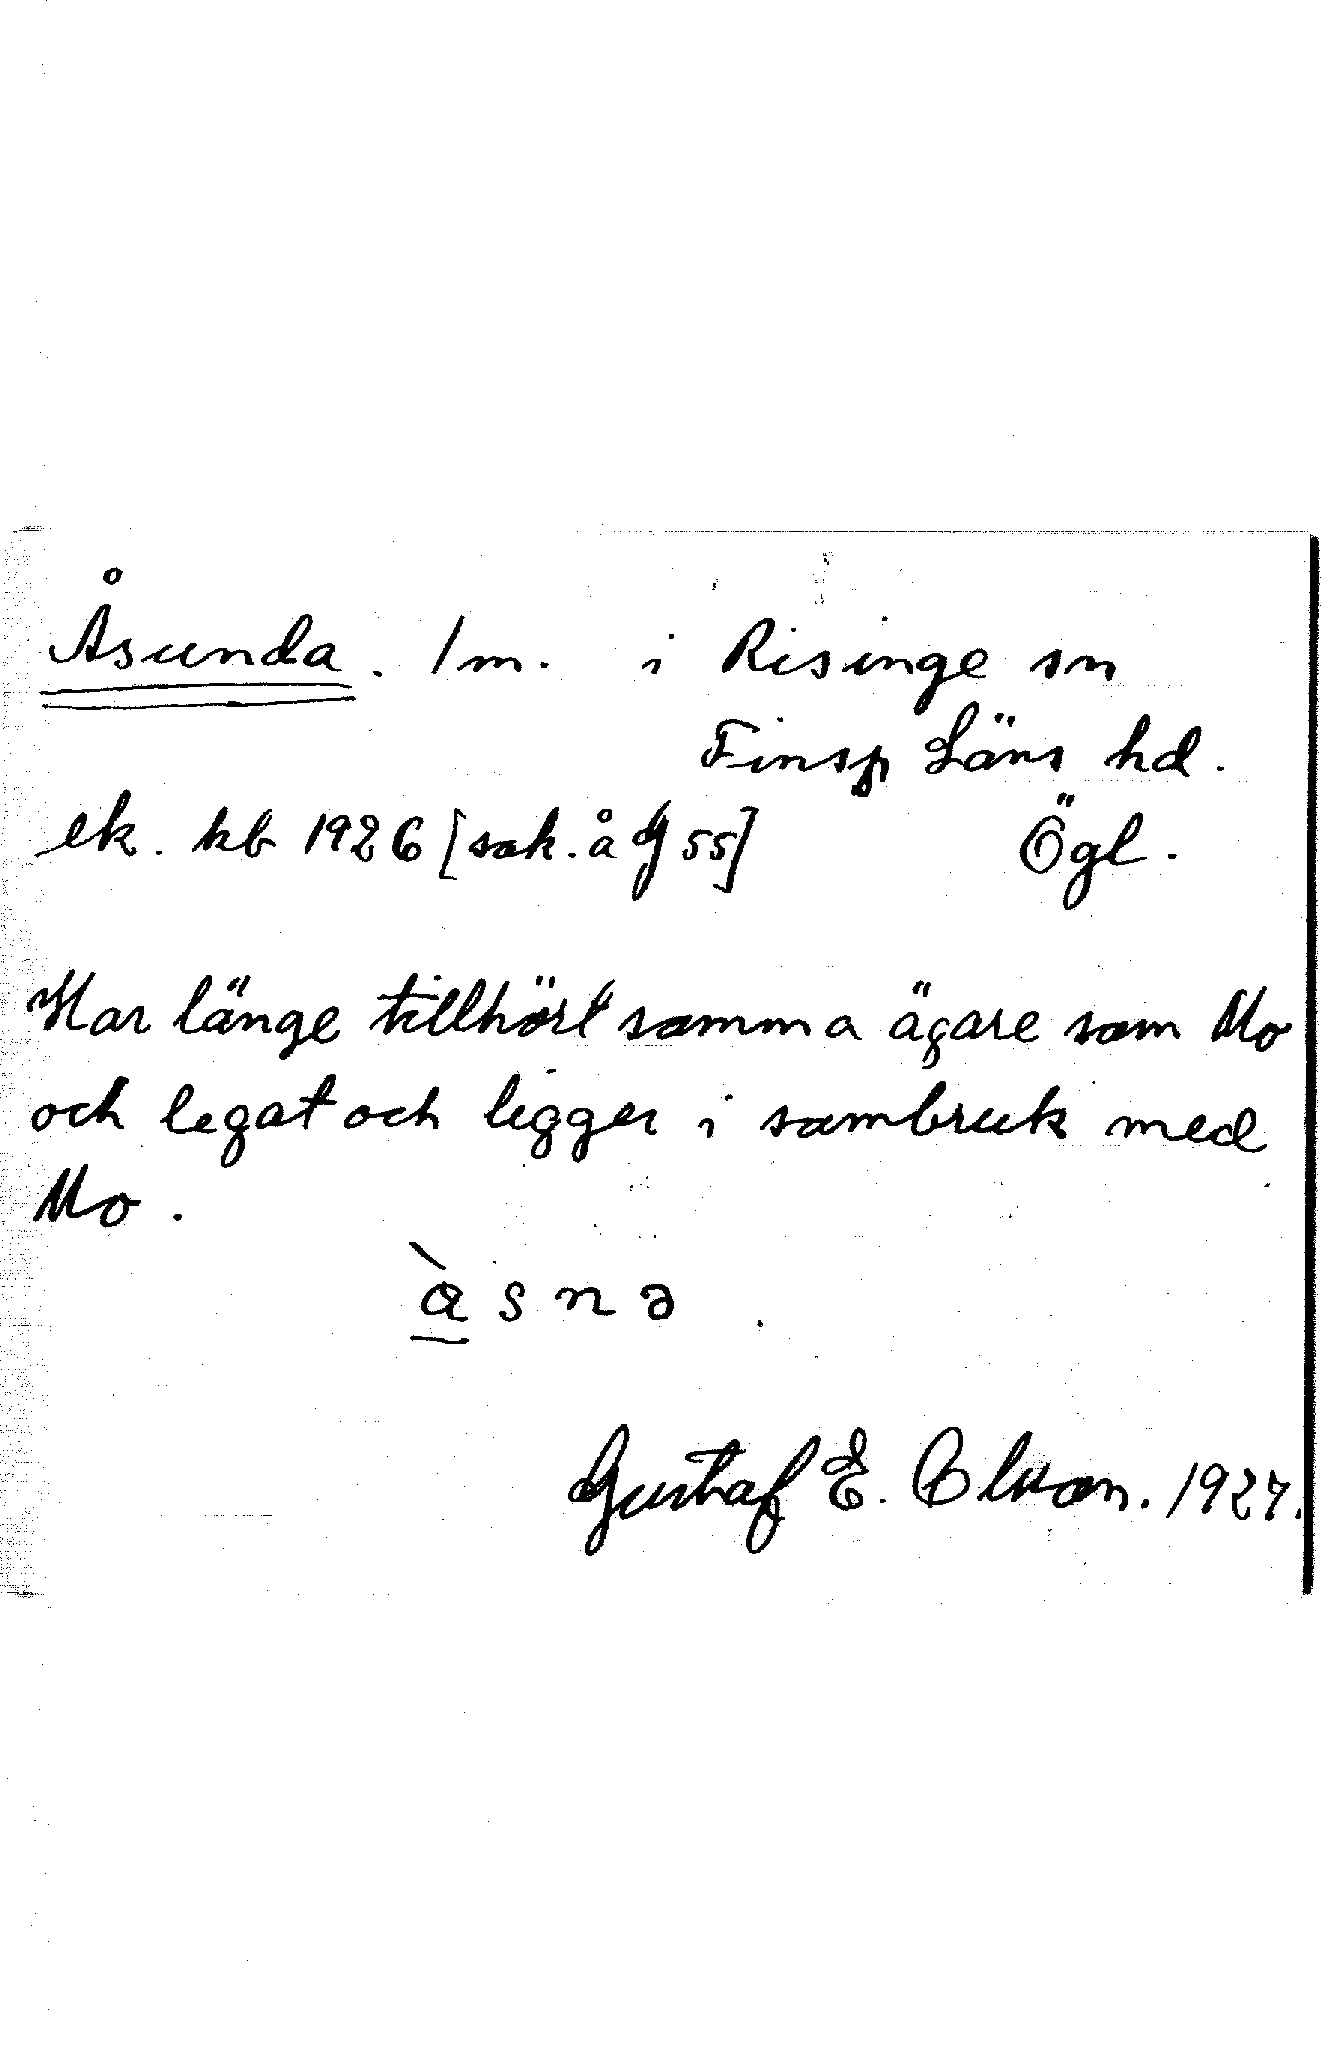 Åsunda. 1 m. i Risinge sn
Finsp Läns hd.
ek. kb 1926 [sak. å G 55] Ögl.
Har länge tillhört samma ägare som Mo
och legat och ligger i sambruk med
Mo.
à s n ə
Gustaf E. Olson. 1927.